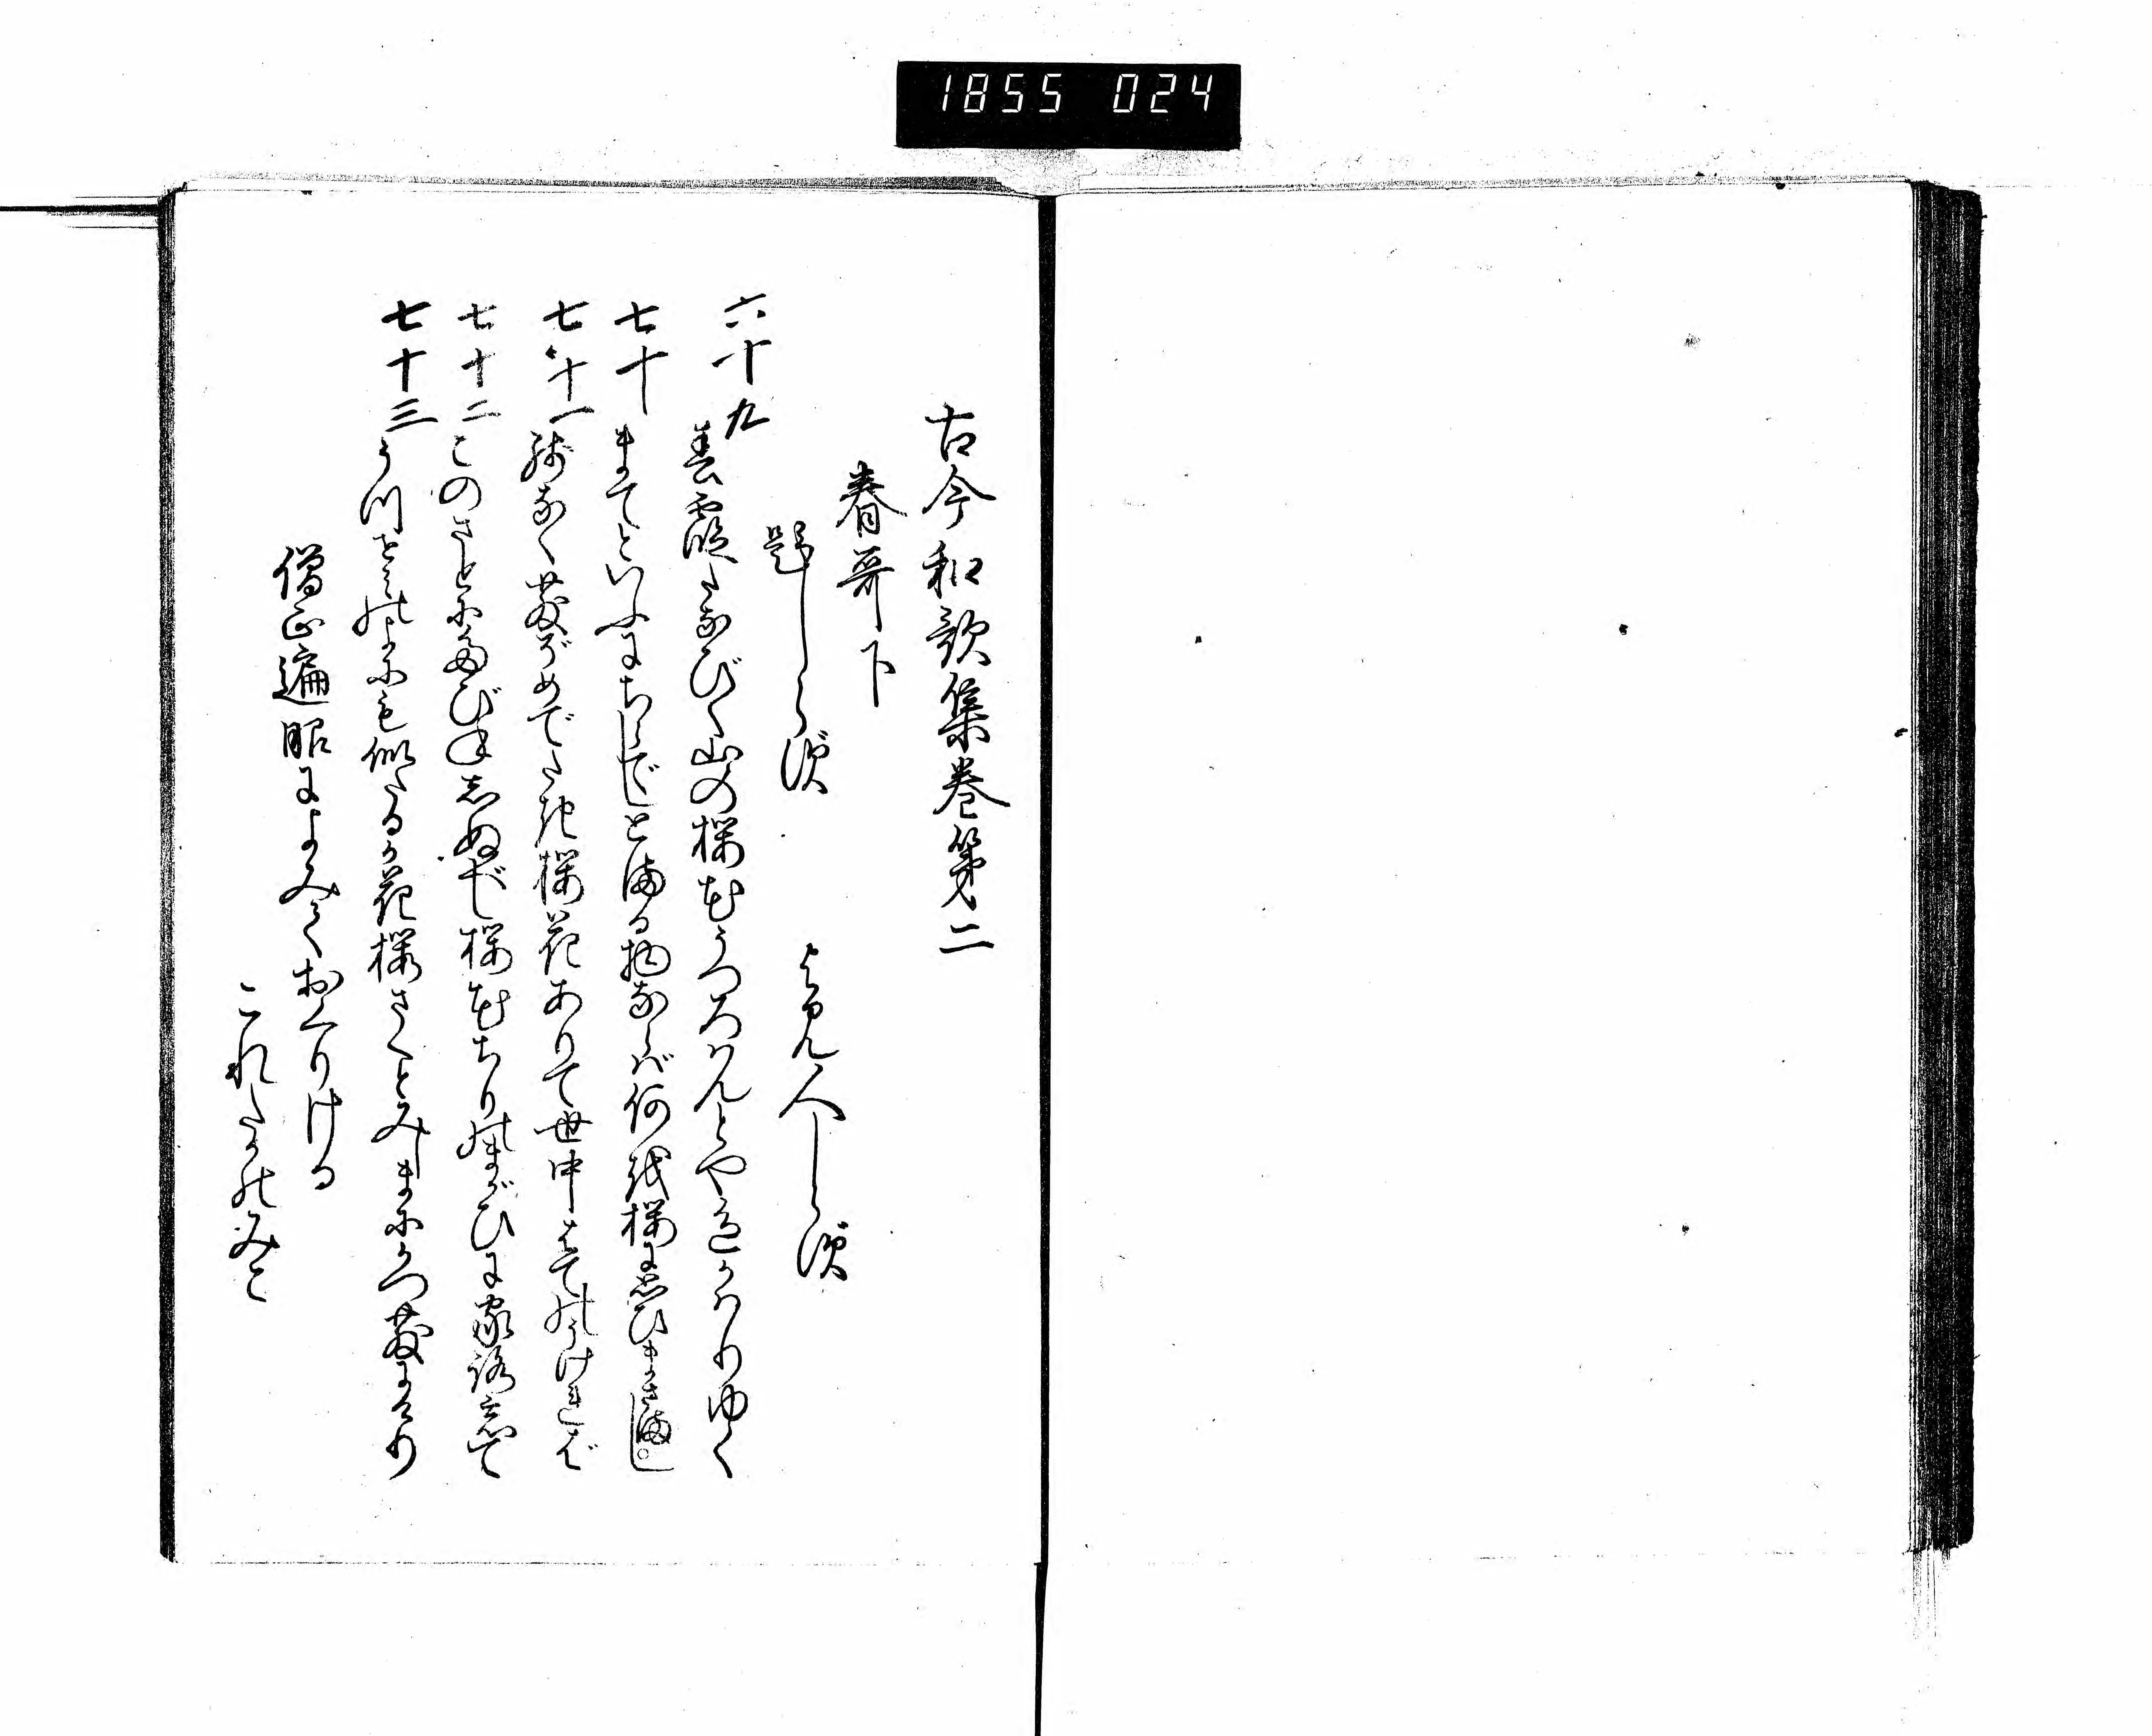 1855 024
古今和歌集巻第二
春哥下
題しらず
よみ人しらず
六十九
春霞たなびく山の桜花うつろはんとや色かはりゆく
七十
まてといふにちらでしとまる物ならば何を桜に思ひまさまし
七十一
残なく散ぞめでたき桜花ありて世中はてのうければ
七十二
このさとにたびねしぬべし桜花ちりのまがひに家路忘て
七十三
うつせみの世にも似たるか花桜さくとみしまにかつ散にけり
僧正遍昭によみておくりける
これたかのみこ